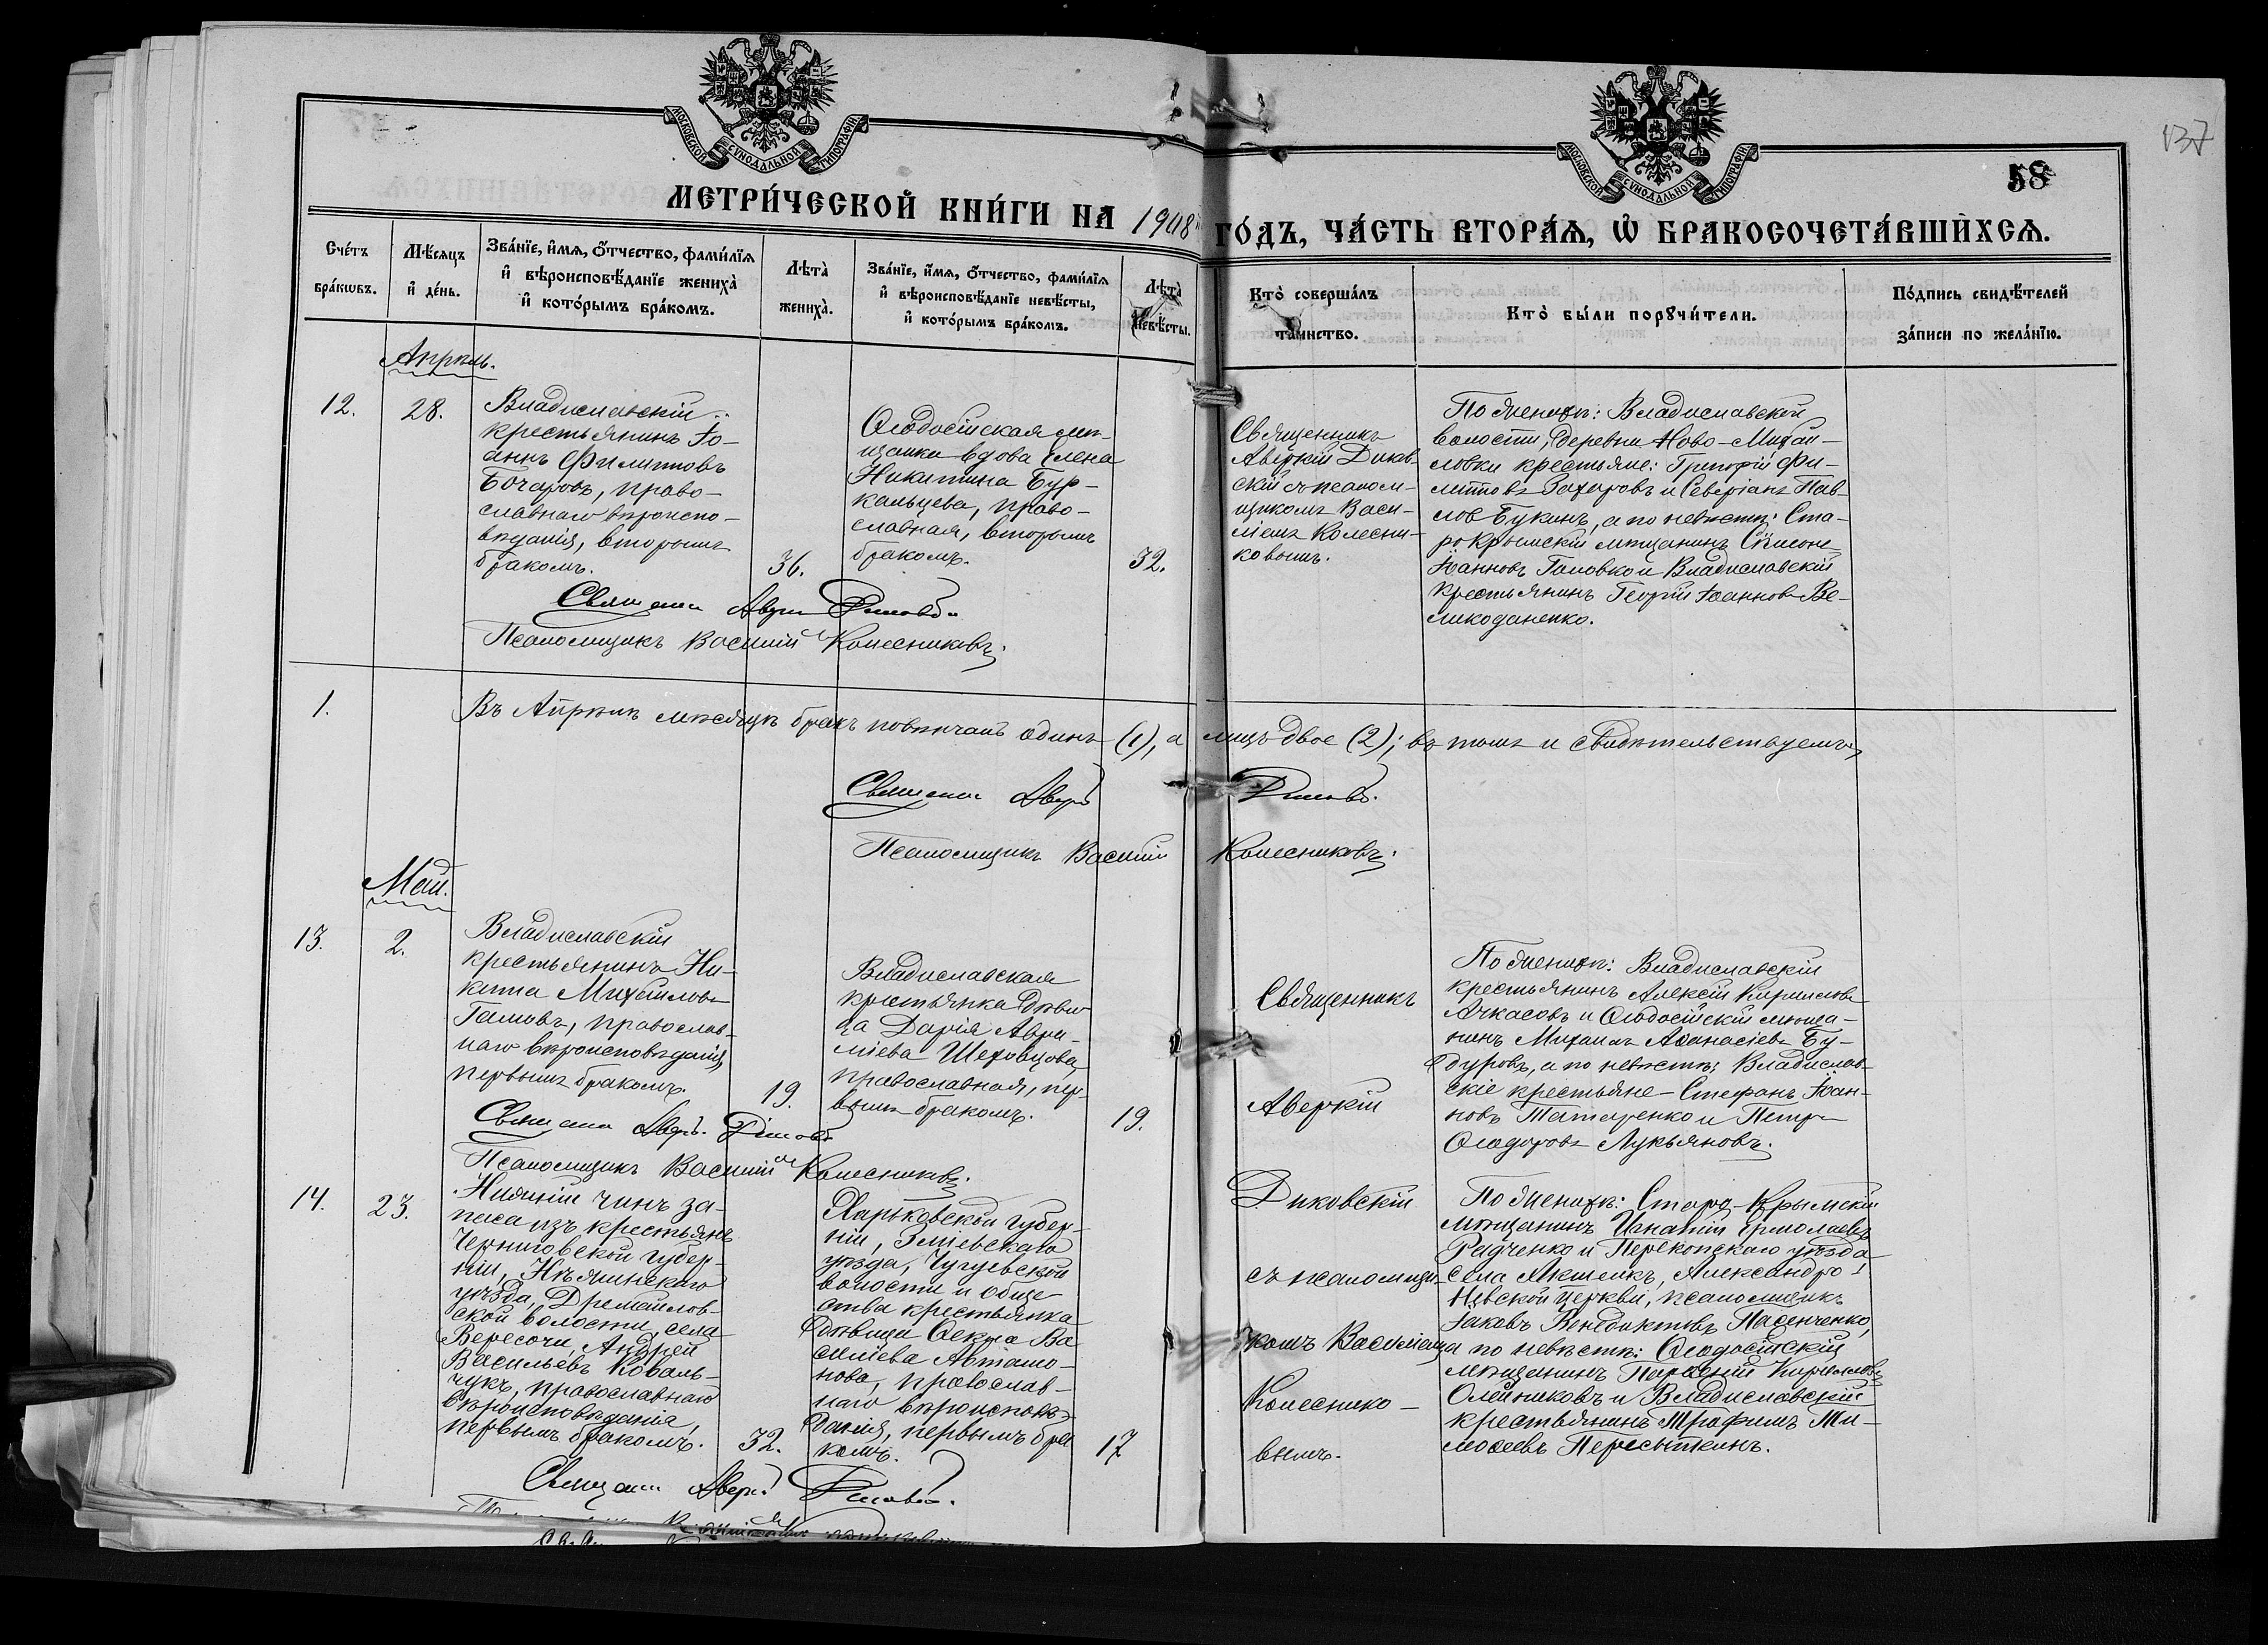 МОСКОВСКОЙ СѴНОДАЛЬНОЙ ТИПОГРАФІИ
МОСКОВСКОЙ СѴНОДАЛЬНОЙ ТИПОГРАФІИ
137
58
МЕТРИ́ЧЕСКОЙ КНИ́ГИ НА 1908 ГО́ДЪ, ЧА́СТЬ ВТОРА́Я, Ѡ҆ БРАКОСОЧЕТА́ВШИХСЯ.
Сче́тъ бра́кѡвъ.
Мѣ́сяцъ и҆ де́нь.
Зва́нїе, и҆́мя, ѻ҆́тчество, фами́лїя
и҆ вѣроисповѣ́данїе жениха̀
и҆ кото́рымъ бра́комъ.
Лѣта̀ жениха̀.
Зва́нїе, и҆́мя, ѻ҆́тчество, фами́лїя
и҆ вѣроисповѣ́данїе невѣ́сты,
и҆ кото́рымъ бра́комъ.
Лѣта̀ невѣ́сты.
Кто̀ соверша́лъ
та́инство.
Кто̀ бы́ли порꙋчи́тели.
По́дпись свидѣ́телей
за́писи по жела́нїю.
Апрѣль.
12.
28.
Владиславскій
крестьянинъ Іо-
аннъ Филипповъ
Бочаровъ, право-
славнаго вѣроиспо-
вѣданія, вторымъ
бракомъ.
36.
Ѳеодосійская мѣ-
щанка вдова Елена
Никитина Бур-
кальцева, право-
славная, вторымъ
бракомъ.
32.
Священникъ
Аверкій Диков-
скій съ псалом-
щикомъ Васи-
ліемъ Колесни-
ковымъ.
По женихѣ: Владиславской
волости, деревни Ново-Михай-
ловки крестьяне: Григорій Фи-
липповъ Захаровъ и Северіанъ Пав-
ловъ Букинъ, а по невѣстѣ: Ста-
рокрымскій мѣщанинъ Сѵмеонъ
Іоанновъ Головко и Владиславскій
крестьянинъ Георгій Іоанновъ Ве-
ликоданенко.
Псаломщикъ Василій Колесниковъ.
1.
Въ Апрѣлѣ мѣсяцѣ бракъ повѣнчанъ одинъ (1), а лицъ двое (2); въ томъ и свидѣтельствуемъ,
Псаломщикъ Василій Колесниковъ.
Май.
13.
2.
Владиславскій
крестьянинъ Ни-
кита Михайловъ
Гамовъ, православ-
наго вѣроисповѣданія,
первымъ бракомъ.
19.
Владиславская
крестьянка дѣви-
ца Дарія Авра-
міева Шеховцова,
православная, пер-
вымъ бракомъ.
19.
По женихѣ: Владиславскій
крестьянинъ Алексій Кирилловъ
Ачкасовъ и Ѳеодосійскій мѣща-
нинъ Михаилъ Аѳанасіевъ Бу-
дуровъ, а по невѣстѣ: Владислав-
скіе крестьяне - Стефанъ Іоан-
новъ Татаренко и Петръ
Ѳеодоровъ Лукьяновъ.
Псаломщикъ Василій Колесниковъ.
14.
23.
Нижній чинъ за-
паса изъ крестьянъ
Черниговской губер-
ніи, Нѣжинскаго
уѣзда, Дремайлов-
ской волости, села
Вересочи, Андрей
Васильевъ Коваль-
чукъ, православнаго
вѣроисповѣданія,
первымъ бракомъ.
32.
Харьковской губер-
ніи, Зміевскаго
уѣзда, Чугуевской
волости и обще-
ства крестьянка
дѣвица Ѳекла Ва-
силіева Автамо-
нова, православ-
наго вѣроисповѣ-
данія, первымъ бра-
комъ.
17
Священникъ
Аверкій
Диковскій
съ псаломщи-
комъ Василіемъ
Колеснико-
вымъ.
По женихѣ: Старо-Крымскій
мѣщанинъ Игнатій Ермолаевъ
Радченко и Перекопскаго уѣзда
села Акшеикъ, Александро-
Невской церкви, псаломщикъ
Іаковъ Венедиктовъ Пасенченко,
а по невѣстѣ: Ѳеодосійскій
мѣщанинъ Парѳеній Кирилловъ
Олейниковъ и Владиславскій
крестьянинъ Трофимъ Ти-
моѳеевъ Пересыпкинъ.